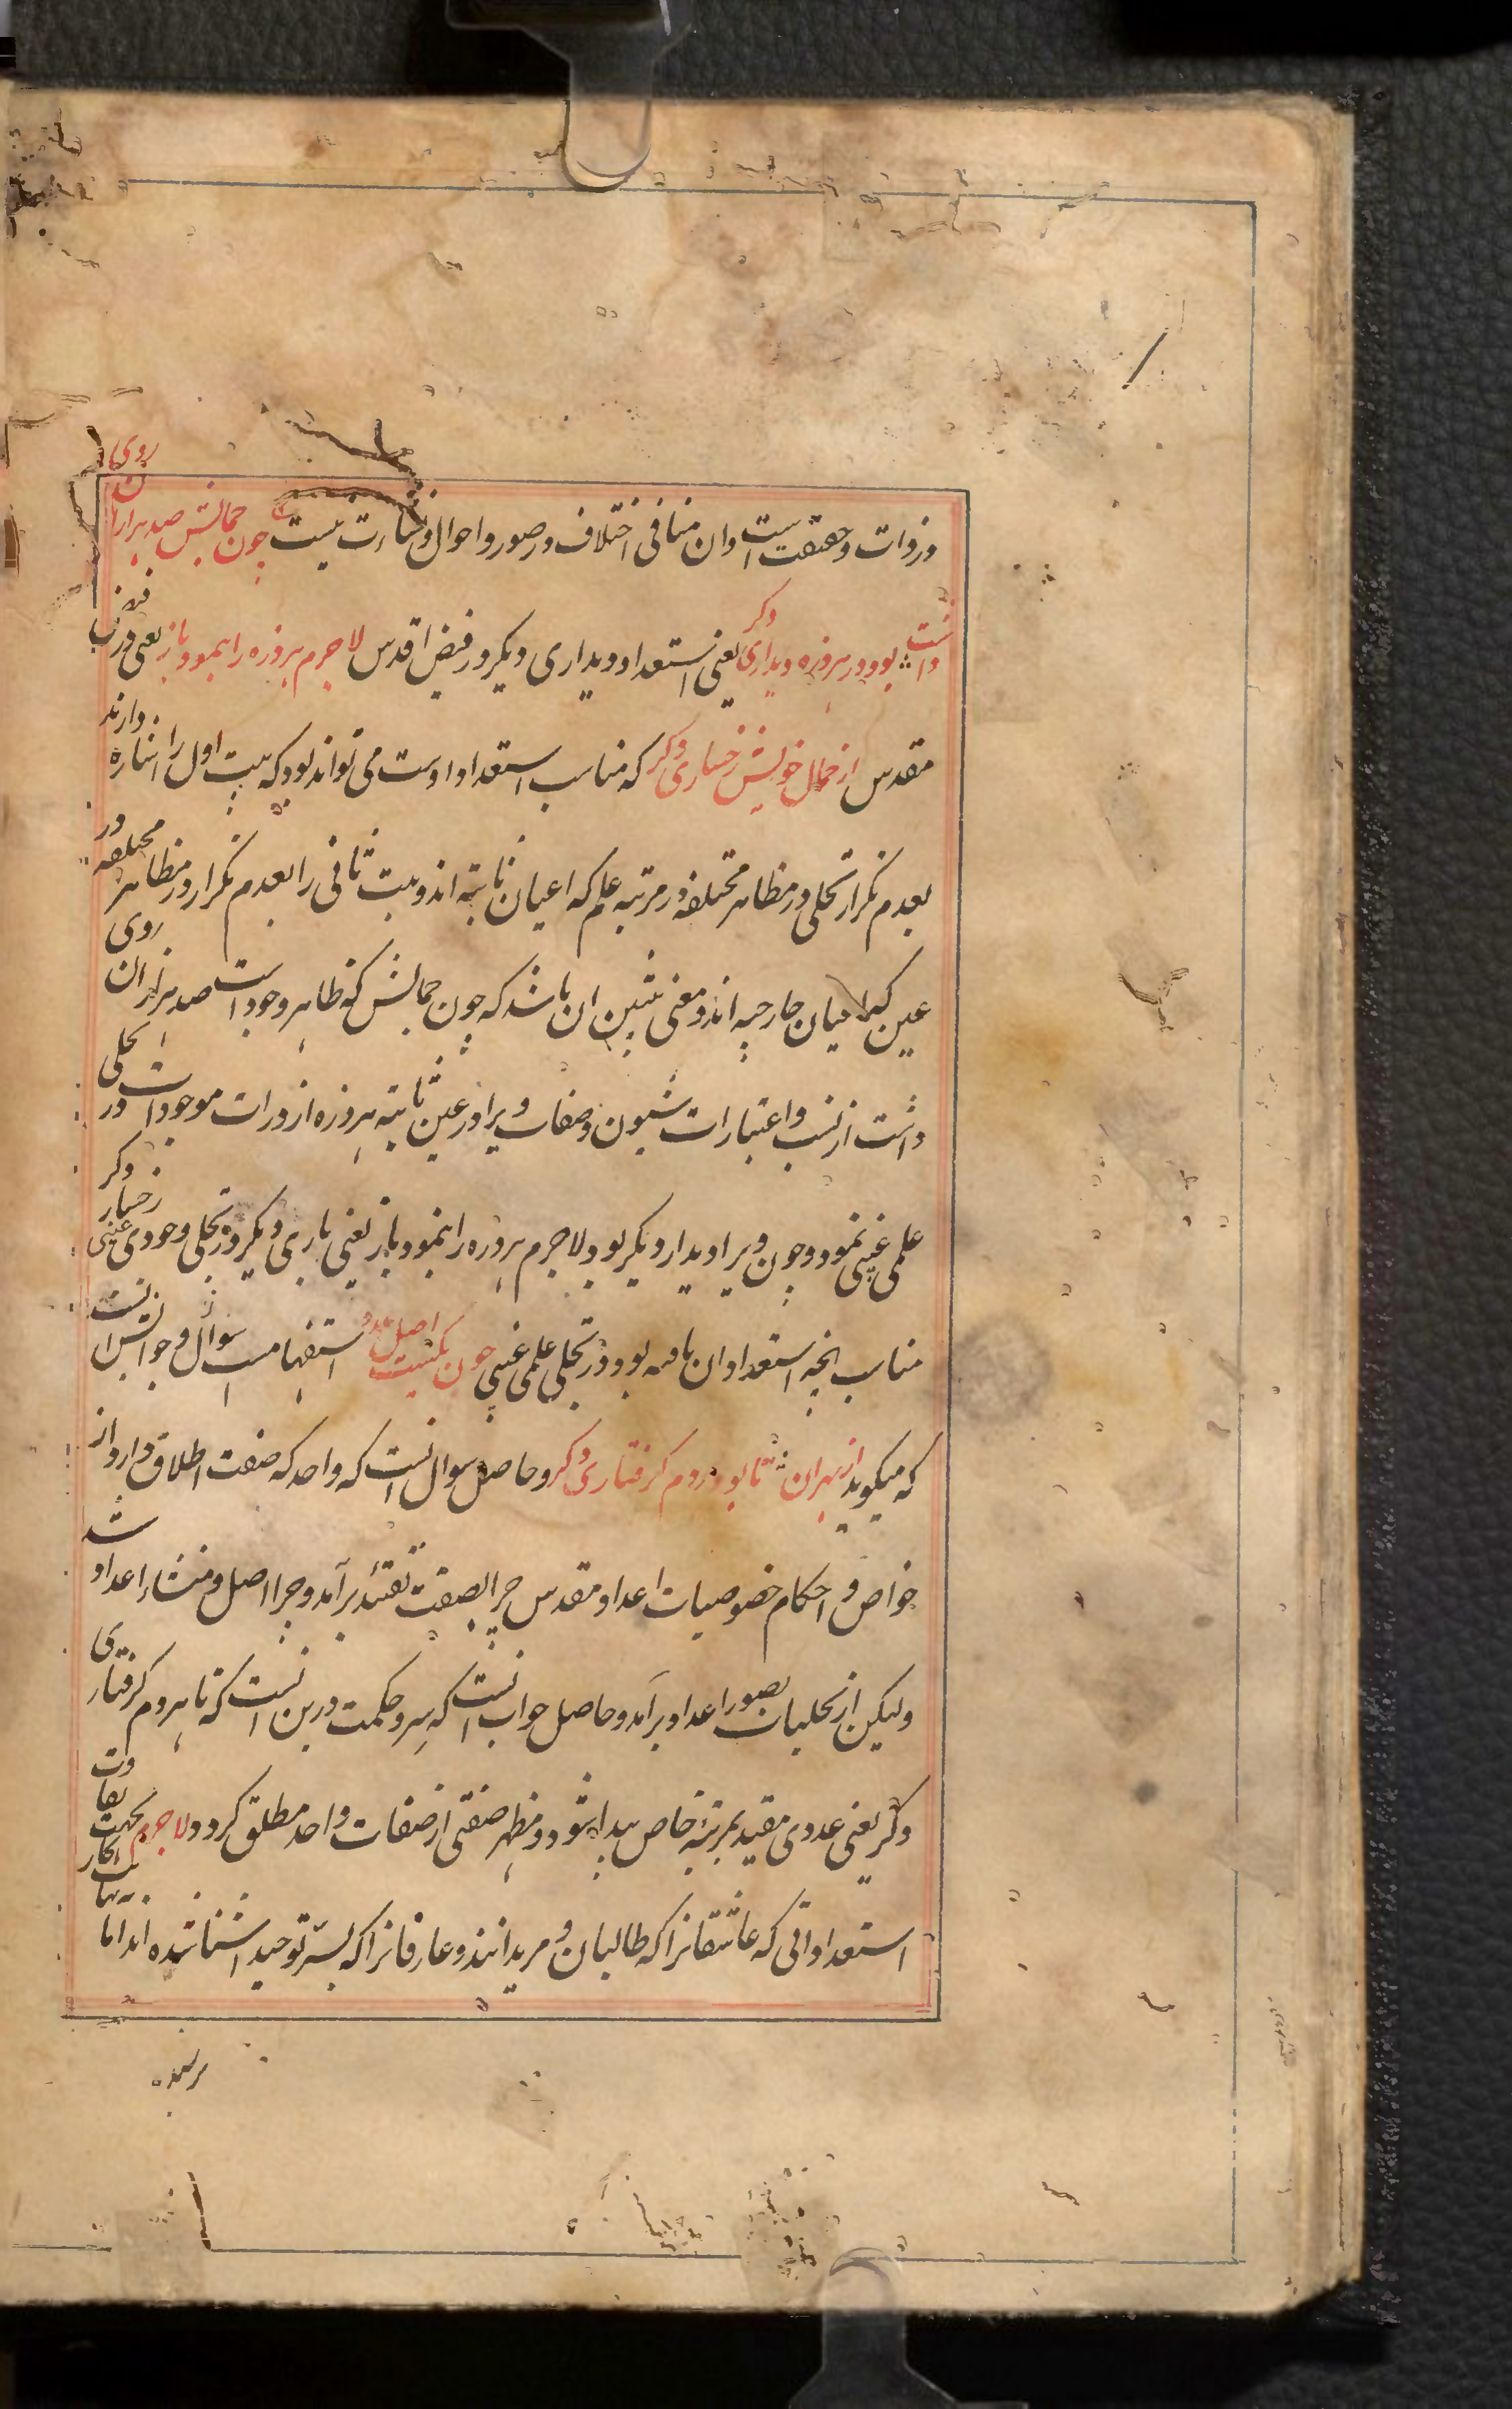 در ذوات و حقیقت است و ان منافی اختلاف در صور و احوال و نشاءت نیست چون جمالش صد هزاران روی
داشت بود در هر ذره دیداری دکر یعنی استعداد دیداری دیکر در فیض اقدس لاجرم هر ذره را بنمود باز یعنی در فیض
مقدس از جمال خویش رخساری دکر که مناسب استعداد اوست می تواند بود که بیت اول را اشاره دارند
بعدم تکرار تجلی در مظاهر مختلفه در مرتبه علم که اعیان ثابته اند و بیت ثانی را بعدم تکرار در مظاهر مختلفه در
عین که اعیان خارجیه اند و معنی بیتین ان باشد که چون جمالش که ظاهر وجود است صد هزاران روی
داشت از نسب و اعتبارات شیون و صفات ویرا در عین ثابته هر ذره از ذرات موجودات در تجلی
علمی غیبی نمود و چون ویرا دیدار دیکر بود لاجرم هر ذره را بنمود باز یعنی باری دیکر در تجلی وجودی عینی رخسار دکر
مناسب انچه استعداد ان یافته بود در تجلی علمی غیبی چون یکیست اصل عدد استفهامست سوال و جوابش انست
که میکوید از بهر ان تا بود هر دم کرفتاری دکر و حاصل سوال انست که واحد که صفت اطلاق دارد از
خواص و احکام خصوصیات اعداد مقدس چرا بصفت تقید برآمد و چرا اصل و منشاء اعداد شد
ولیکن از تجلیات بصور اعداد برآمد و حاصل جواب انست که سر و حکمت درین انست که تا هر دم کرفتاری
دکر یعنی عددی مقید بمرتبهٔ خاص پیدا شود و مظهر صفتی از صفات واحد مطلق کردد لاجرم بجهت تفاوت
استعداداتی که عاشقانرا که طالبان و مریدانند و عارفانرا که بسرّ توحید اشنا شده اند اما